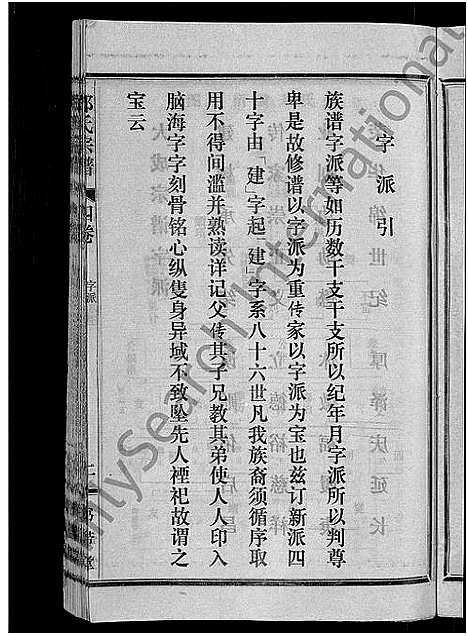 字派引
族谱字派等如历数干支干支所以纪年月字派所以判尊
卑是故修谱以字派为重传家以字派为宝也兹订新派四
十字由「建」字起「建」字系八十六世凡我族裔须循序取
用不得间滥并熟读详记父传其子兄教其弟使人人印入
脑海字字刻骨铭心纵隻身异域不致坠先人禋祀故谓之
宝云
氏宗谱
四卷
字派
FamilySearch International